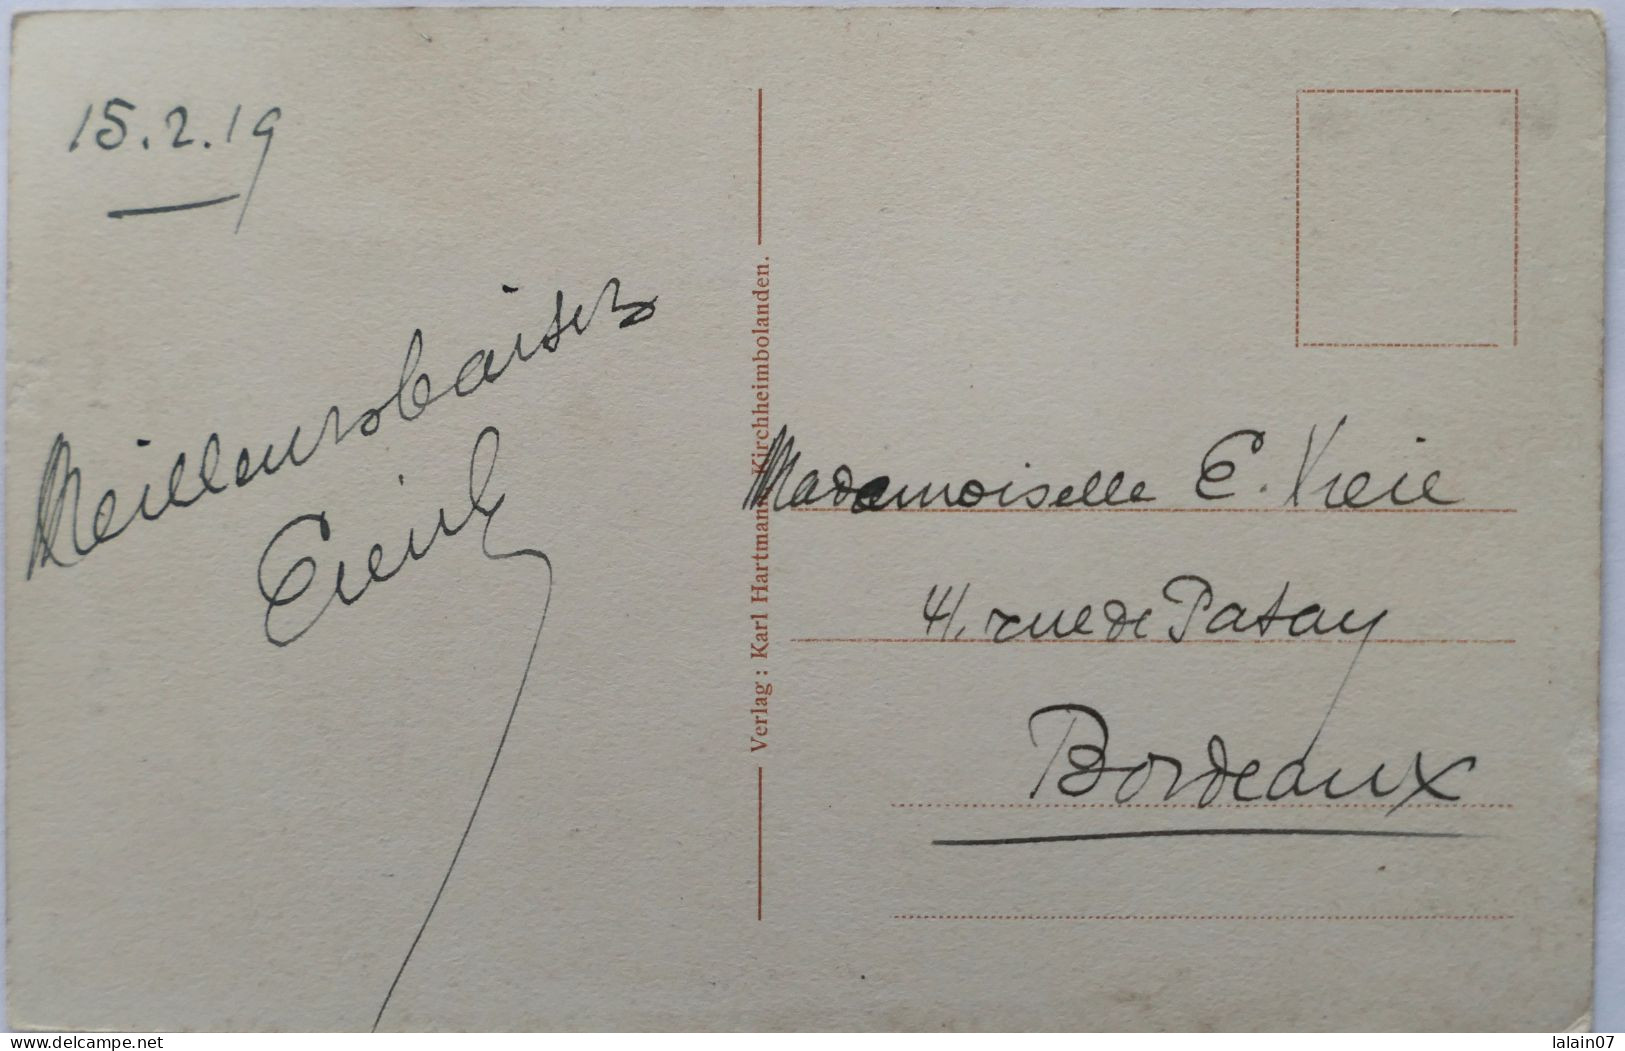 15.2.19
Meilleurs baisers
Verlag: Karl Hartmann, Kirchheimbolanden.
Mademoiselle E.
41, rue de Patay
Bordeaux
www.delcampe.net
lalain07